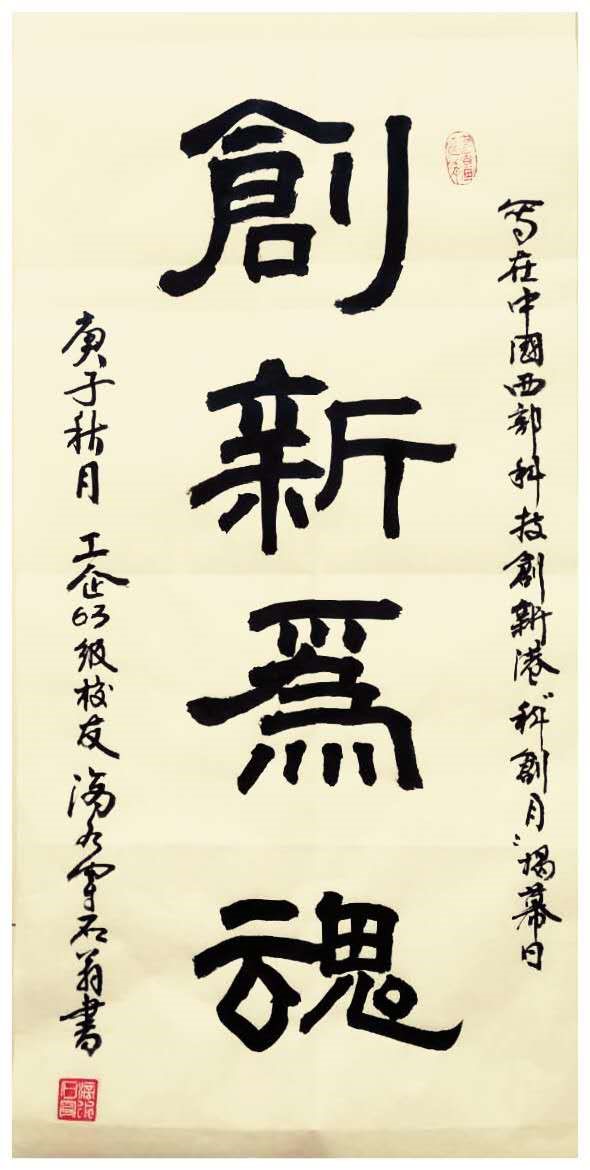 写在中國西部科技創新港“科創月”揭幕日
創新爲魂
庚子秋月 工企63級校友 滴水穿石翁書